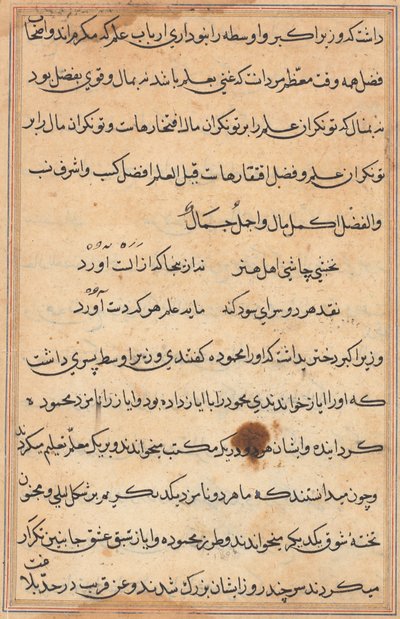 داشت که وزیر اکبر و اوسط را بنوداری ارباب علم که مکرم اند و اصحاب
فضل همه وقت معظم مردانست که غنی بعلم باشد نه بمال و قوی بفضل بود
نه بمنال که توانگران علم را بر توانگران مال افتخارهاست و توانگران مال را بر
توانگران علم و فضل افتقارهاست قیل العلم افضل کسب و اشرف نسب
والفضل اکمل مال و اجمل جمال
نخشبی چاشنی اهل هنر
نقد هر دو سرای سود کند مایه علم هر که دست آورد
وزیر اکبر دختر بداشت که او را محموده گفتندی و وزیر اوسط پسری داشت
که او را ایاز خواندندی محمود را با ایاز داده بود و ایاز را نامزد محموده
گردانیده و ایشان هر دو در یک مکتب میخواندند و بر یک معلم تعلیم میکردند
و چون میدانستند که ما هر دو نامزد یکدیگریم بر شکل لیلی و مجنون
تخته شوق یکدیگر میخواندند و طرز محموده و ایاز سبق عشق جانبین تکرار
میکردند سر چند روز ایشان بزرگ شدند و عن قریب در حد بلاغت